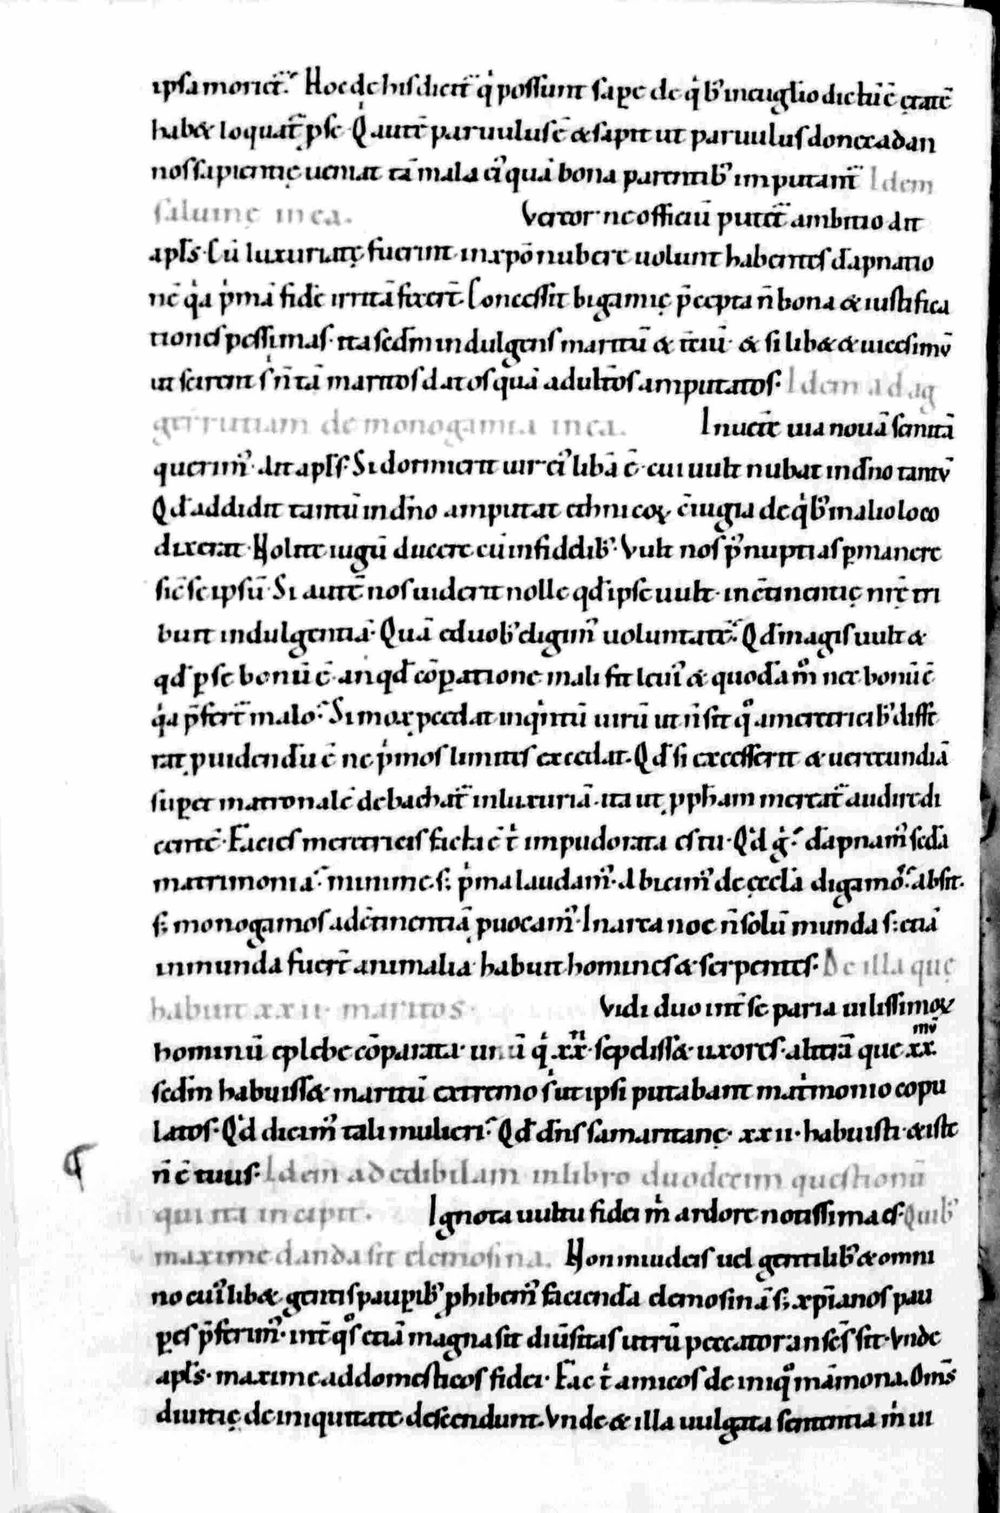 ipsa moriet᷑. Hoc de his dicit᷑ q̇ possunt sapę de q̇bꝰ in euglio dictū ē ętatē
hab& loquat᷑ p̱ se. Q̇ autē paruulus ē & sapit ut paruulus donec ad an
nos sapientię ueniat tā mala ei᷒ quā bona parentibꝰ imputant᷑ Idem
saluinę in ea. Vereor ne officiū putet᷑ ambitio ait
apl̄s. Cū luxuriatę fuerint in xp̄o nubere uolunt habentes dāpnatio
nē q̇a ṗmā fidē irritā fecer̄. Concessit bigamię p̄cepta n̄ bona & iustifica
tiones pessimas. ita scd̄m indulgens maritū & t̄ciū. & si lib& & uicesimū
ut scirent s' n̄ tā maritos datos quā adult̄os amputatos. Idem ad ag
gerrutiam de monogamia in ea. Inuet̄e uia nouā semitā
querim᷒. Ait apl̄s. Si dormierit uir ei᷒ libā ē. cui uult nubat in dn̄o tantū
Qđ addidit tantū in dn̄o amputat ethnicoꝝ ꝯiugia de q̇bꝰ in alio loco
dixerat. Nolite iugū ducere cū infidelibꝰ. Vult nos p̱ nuptias p̱manere
sic̄ se ipsū. Si autē nos uiderit nolle qđ ipse uult. incōtinentię nr̄ę tri
buit indulgentiā. Quā e duobꝰ eligim᷒ uoluntatē. Qđ magis uult &
qđ p̱ se bonū ē. an qđ cōparatione mali fit leui᷒ & quodāmº nec bonū ē
q̇a p̄fert᷑ malo. Si mox pcedat inquitū uirū ut n̄ sit qº a meretricibꝰ diffe
rat. puidendū ē ne ṗmos limites excedat. Qđ si excesserit & uerecundiā
super matronalē debachat᷑ in luxuriā. ita ut p̱ pph̄am mereat᷑ audire di
centē. Facies meretricis facta ē t̄ impudorata es tu. Qđ g̊. dāpnam᷒ scđa
matrimonia. minime. s; ṗma laudam᷒. Abicim᷒ de ęcclā digamos. absit.
s; monogamos ad ꝯtinentiā puocam᷒. In arca noe n̄ solū munda s; etiā
inmunda fuer̄ animalia habuit homines & serpentes. De illa quę
habuit xxii. maritos. Vidi duo int̄ se paria uilissimoꝝ
hominū e plebe cōparata. unū q̇ .xx. sepelisset uxores. alterā que xx.mū
scd̄m habuiss& maritū extremo s' ut ipsi putabant mat̄monio copu
latos. Qđ dicim᷒ tali mulieri. Qđ dn̄s samaritanę. xxii. habuisti & iste
n̄ ē tuus. Idem ad edibilam in libro duodecim questionū
qui ita incipit. Ignota uultu fidei m̄ ardore notissima es. Quibꝰ
maxime danda sit elemosina. Non iudeis uel gentilibꝰ & omni
no cui᷒lib& gentis pauperibꝰ phibem᷒ faciendā elemosinā s; xp̄ianos pau
peres p̄ferim᷒. int̄ qºs etiā magna sit diūsitas utrū peccator an sc̄s sit. Vnde
apl̄s. maxime ad domesticos fidei. Fac t̄ amicos de iniqº māmona. Om̄s
diuitię de iniquitate descendunt. Vnde & illa uulgata sententia m̄ ui